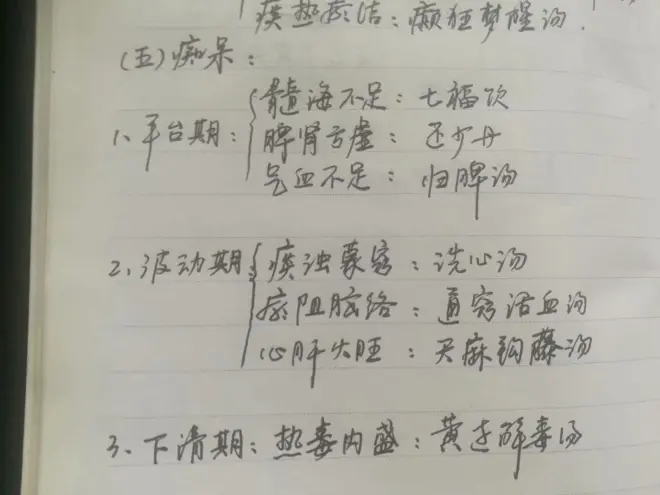 痰热瘀结：癫狂梦醒汤.
(五)痴呆：
髓海不足：七福饮
1、平台期：脾肾亏虚：还少丹
气血不足：归脾汤
2、波动期：痰浊蒙窍：洗心汤
瘀阻脑络：通窍活血汤
心肝火旺：天麻钩藤汤
3、下滑期：热毒内盛：黄连解毒汤